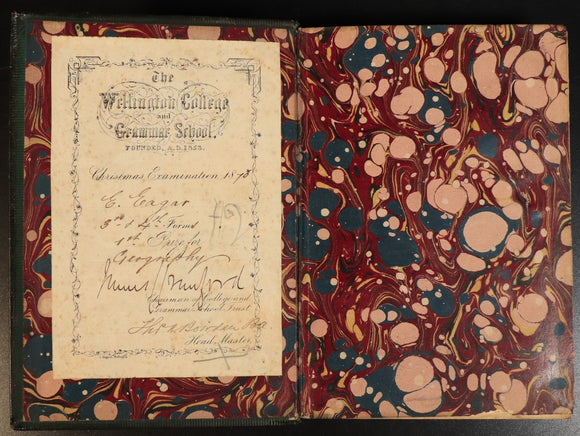 The
Wellington College
and
Grammar School,
FOUNDED, A.D. 1853.
Christmas Examination 1873
C. Eagar
3rd & 4th Forms
1st Prize for
Geography
Chairman of College and
Grammar School Trust
Bowden
Head Master